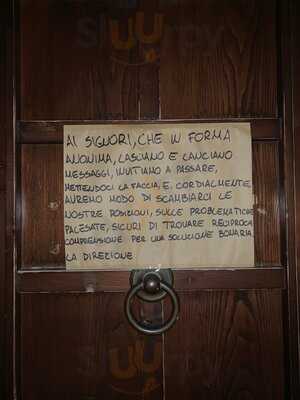 AI SIGNORI, CHE IN FORMA
ANONIMA, LASCIANO E LANCIANO
MESSAGGI, INVITIAMO A PASSARE,
METTENDOCI LA FACCIA, E, CORDIALMENTE
AVREMO MODO DI SCAMBIARCI LE
NOSTRE POSIZIONI, SULLE PROBLEMATICHE
PALESATE, SICURI DI TROVARE RECIPROCA
COMPRENSIONE PER UNA SOLUZIONE BONARIA.
LA DIREZIONE